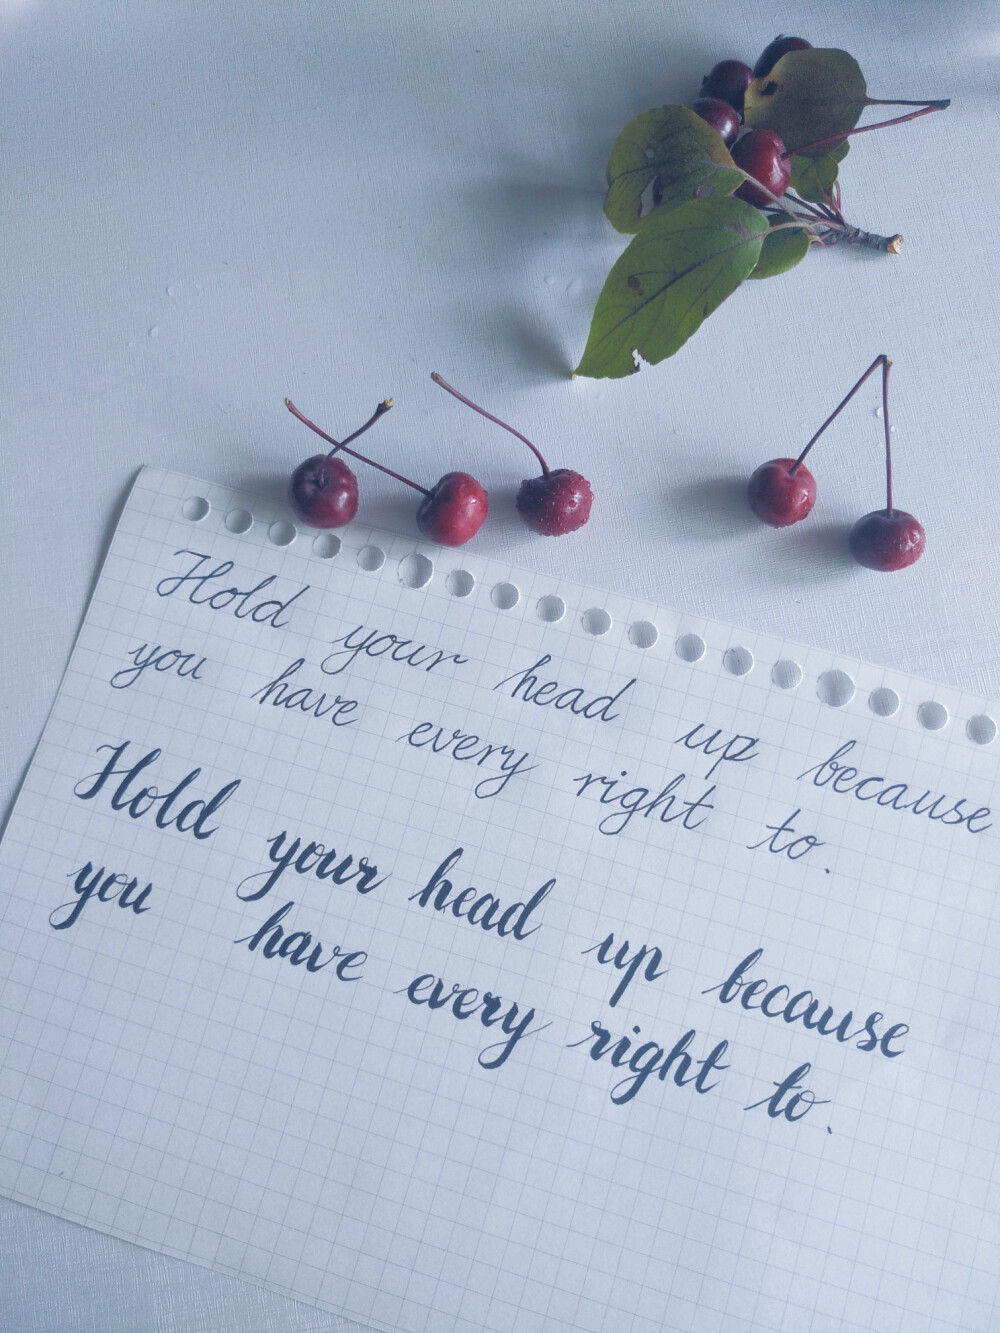 Hold your head up because
you have every right to.
Hold your head up because
you have every right to.